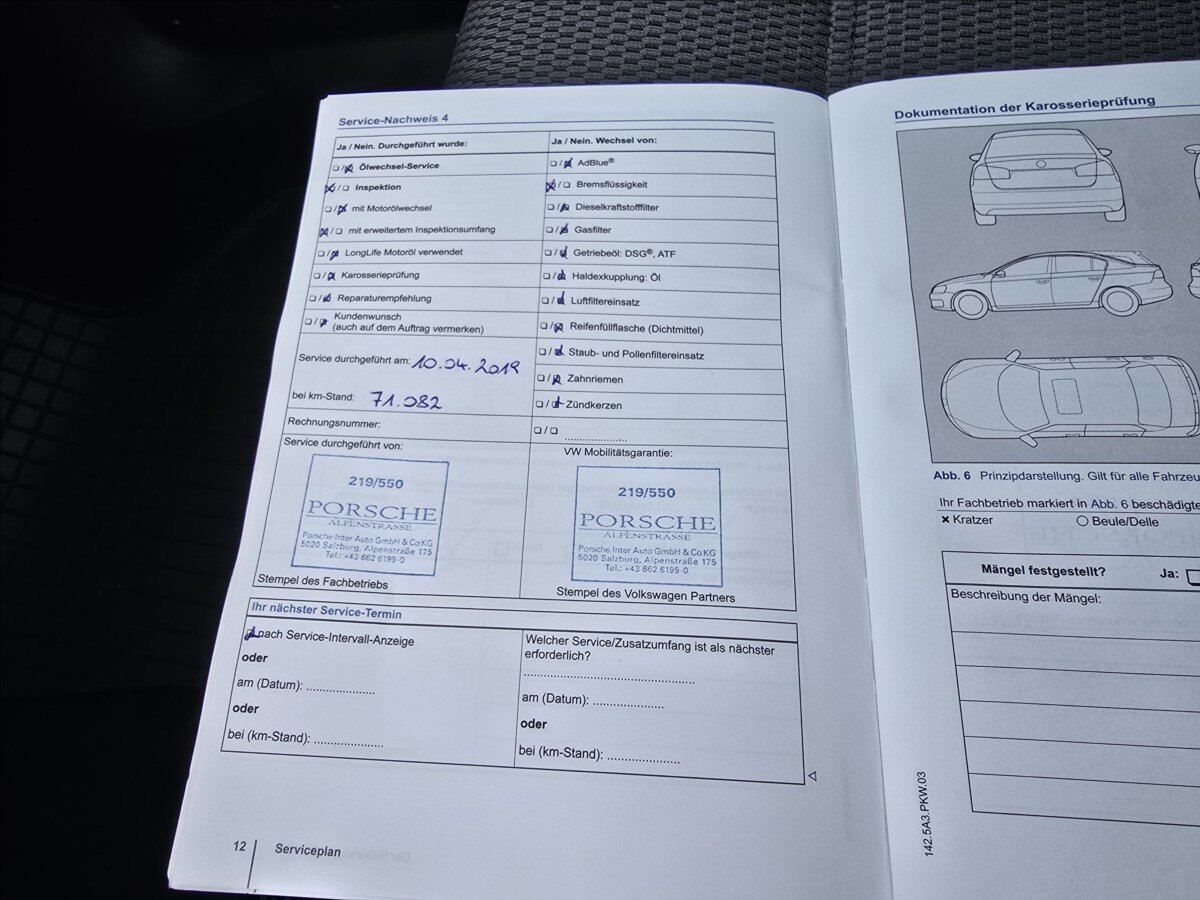 Service-Nachweis 4
Ja / Nein. Durchgeführt wurde:
Ölwechsel-Service
Inspektion
mit Motorölwechsel
mit erweitertem Inspektionsumfang
LongLife Motoröl verwendet
Karosserieprüfung
Reparaturempfehlung
Kundenwunsch
(auch auf dem Auftrag vermerken)
Service durchgeführt am: 10.04.2019
bei km-Stand: 71.082
Rechnungsnummer:
Service durchgeführt von:
219/550
PORSCHE
ALPENSTRASSE
Porsche Inter Auto GmbH & Co KG
5020 Salzburg, Alpenstraße 175
Tel.: +43 662 6199-0
Stempel des Fachbetriebs
Ja / Nein. Wechsel von:
AdBlue®
Bremsflüssigkeit
Dieselkraftstofffilter
Gasfilter
Getriebeöl: DSG®, ATF
Haldexkupplung: Öl
Luftfiltereinsatz
Reifenfüllflasche (Dichtmittel)
Staub- und Pollenfiltereinsatz
Zahnriemen
Zündkerzen
VW Mobilitätsgarantie:
219/550
PORSCHE
ALPENSTRASSE
Porsche Inter Auto GmbH & Co KG
5020 Salzburg, Alpenstraße 175
Tel.: +43 662 6199-0
Stempel des Volkswagen Partners
Ihr nächster Service-Termin
nach Service-Intervall-Anzeige
oder
am (Datum): ....................
oder
bei (km-Stand): ....................
Welcher Service/Zusatzumfang ist als nächster
erforderlich?
am (Datum): ....................
oder
bei (km-Stand): ....................
12 Serviceplan
Dokumentation der Karosserieprüfung
Abb. 6 Prinzipdarstellung. Gilt für alle Fahrzeu
Ihr Fachbetrieb markiert in Abb. 6 beschädigte
× Kratzer
Beule/Delle
Mängel festgestellt? Ja:
Beschreibung der Mängel:
142.5A3.PKW.03